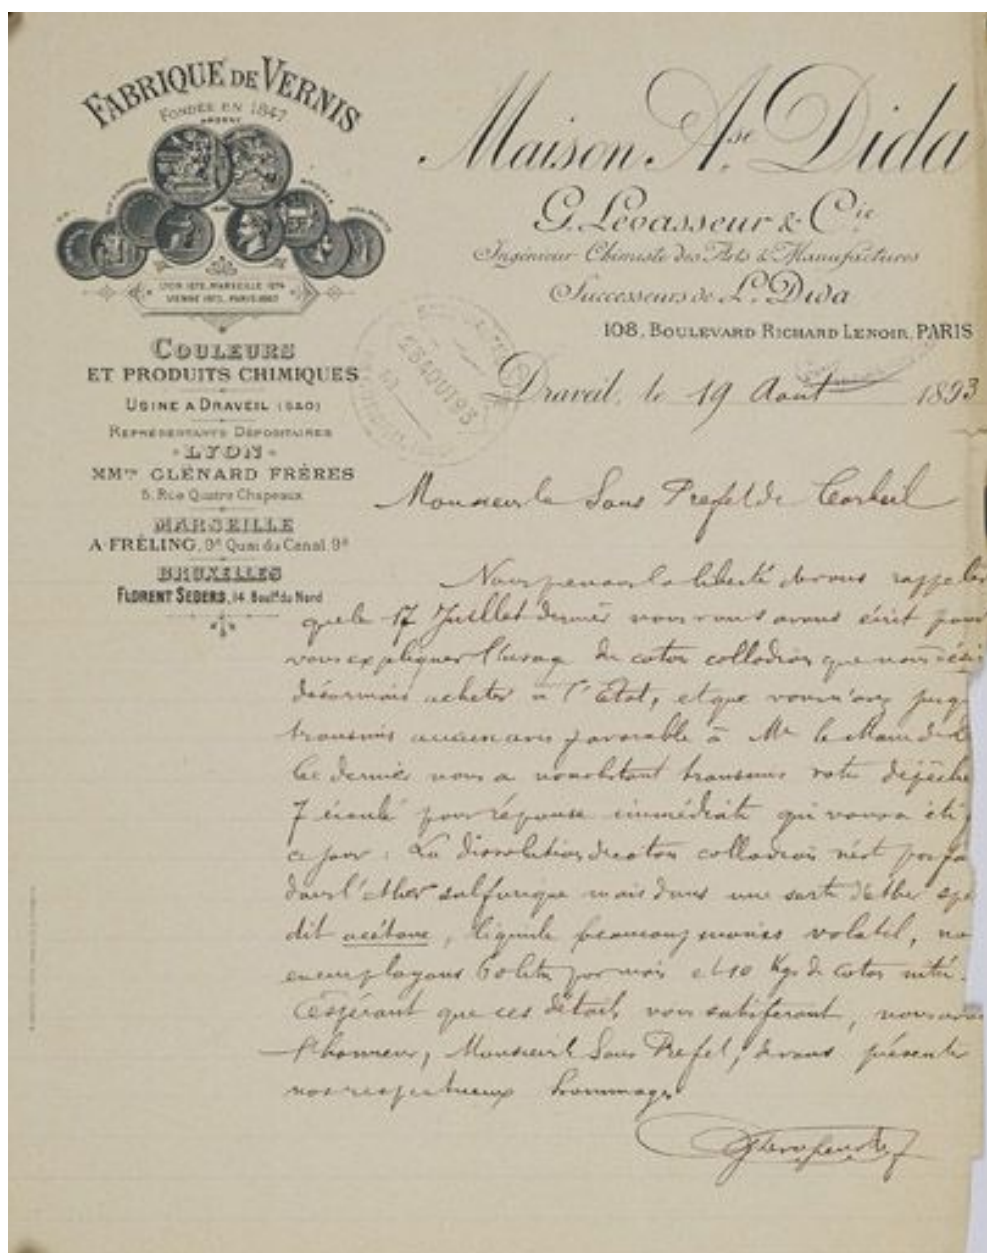 FABRIQUE DE VERNIS
FONDÉE EN 1847
ARGENT
LYON 1872, MARSEILLE 1874
VIENNE 1873, PARIS 1867
COULEURS
ET PRODUITS CHIMIQUES
USINE A DRAVEIL (S&O)
REPRÉSENTANTS DÉPOSITAIRES
LYON
MM^rs GLÉNARD FRÈRES
5, Rue Quatre Chapeaux
MARSEILLE
A. FRÉLING, 9^A Quai du Canal 9^A
BRUXELLES
FLORENT SEGERS, 14 Boul^d du Nord
Maison A.^se Dida
G. Levasseur & C^ie
Ingénieur Chimiste des Arts & Manufactures
Successeurs de L. Dida
108, BOULEVARD RICHARD LENOIR, PARIS
23 AOUT 93
Draveil, le 19 Aout 1893
Monsieur le Sous Prefet de Corbeil
Nous prenons la liberté de vous rappeler
que le 17 Juillet dernier nous vous avons écrit pour
vous expliquer l'usage du coton collodion que nous
désormais acheter à l'Etat, et que vous n'avez
transmis aucun avis favorable à Mr le Maire de
Ce dernier nous a nonobstant transmis votre dépêche
7 écoulé pour réponse immédiate qui vous a été
ce jour : La dissolution de coton collodion n'est pas
dans l'ether sulfurique mais dans une sorte d'ether
dit acétone, liquide beaucoup moins volatil,
en employons 60 lit par mois et 10 Kgs de coton nitré.
Espérant que ces détails vous satisferont, nous avons
l'honneur, Monsieur le Sous Prefet, de vous présenter
nos respectueux hommages